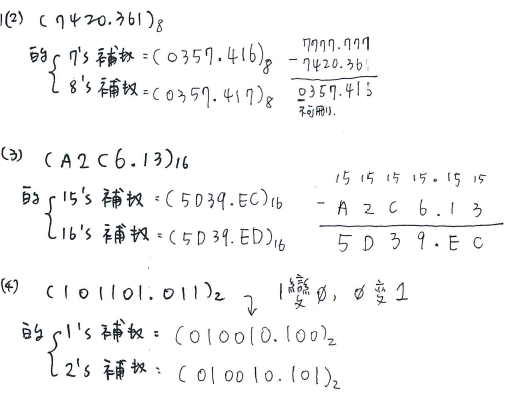 1(2) (7420.361)₈
的 { 7's 補数 = (0357.416)₈
8's 補数 = (0357.417)₈
7777.777
- 7420.361
0357.416
不可刪!.
(3) (A2C6.13)16
的 { 15's 補数 = (5D39.EC)16
16's 補数 = (5D39.ED)16
15 15 15 15 . 15 15
- A 2 C 6 . 1 3
5 D 3 9 . E C
(4) (101101.011)₂ ↴ 1變0, 0變1
的 { 1's 補数 : (010010.100)₂
2's 補数 : (010010.101)₂